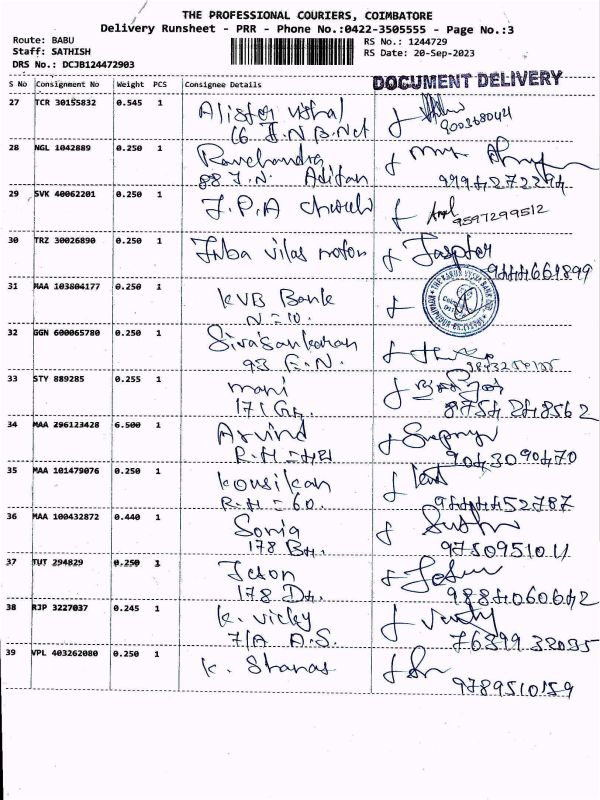 THE PROFESSIONAL COURIERS, COIMBATORE
Delivery Runsheet - PRR - Phone No.:0422-3505555 - Page No.:3
Route: BABU
RS No.: 1244729
Staff: SATHISH
RS Date: 20-Sep-2023
DRS No.: DCJB124472903
S No Consignment No Weight PCS Consignee Details DOCUMENT DELIVERY
27 TCR 30155832 0.545 1
16
9003680421
28 NGL 1042889 0.250 1 Ravichandra
88 J.N. Adithan
29 SVK 40062201 0.250 1 J.P.A
9597299512
30 TRZ 30026890 0.250 1 Inba vilas motor Jaspter
9444661899
31 MAA 103804177 0.250 1 KVB Bank
N=10.
32 GGN 600065780 0.250 1 Sivasankaran
93 E.N.
33 STY 889285 0.255 1 mani
8754248562
34 MAA 296123428 6.500 1 Arvind
9043090470
35 MAA 101479076 0.250 1 kousikan
R.H = 60.
9444452787
36 MAA 100432872 0.440 1 Sonia
178 BH.
9750951011
37 TUT 294829 0.250 1 Jeson
178 DH.
9884060642
38 RJP 3227037 0.245 1 K. vicky
7/A A.S.
39 VPL 403262080 0.250 1 K. Shanas
9789510159